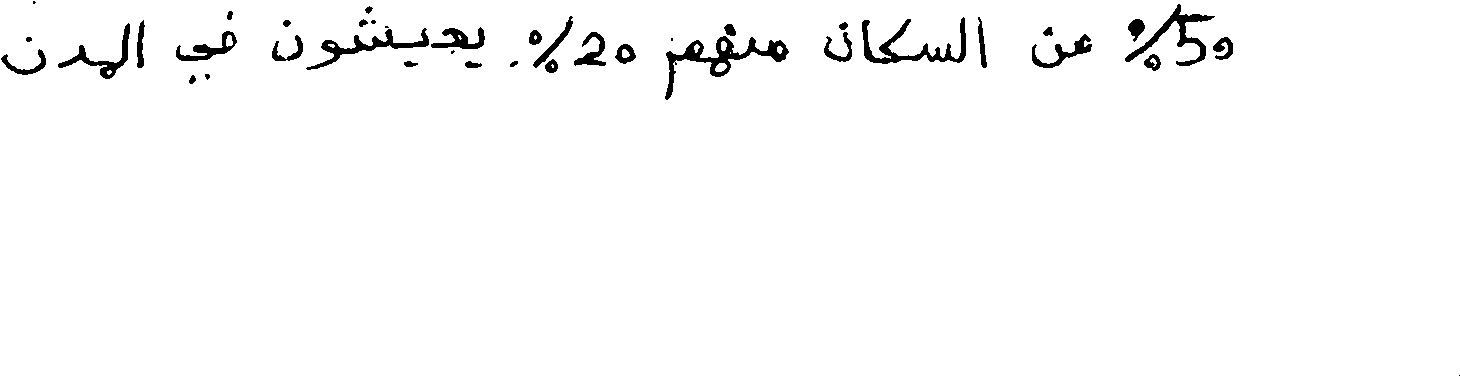 50% من السكان منهم 20% يعيشون في المدن